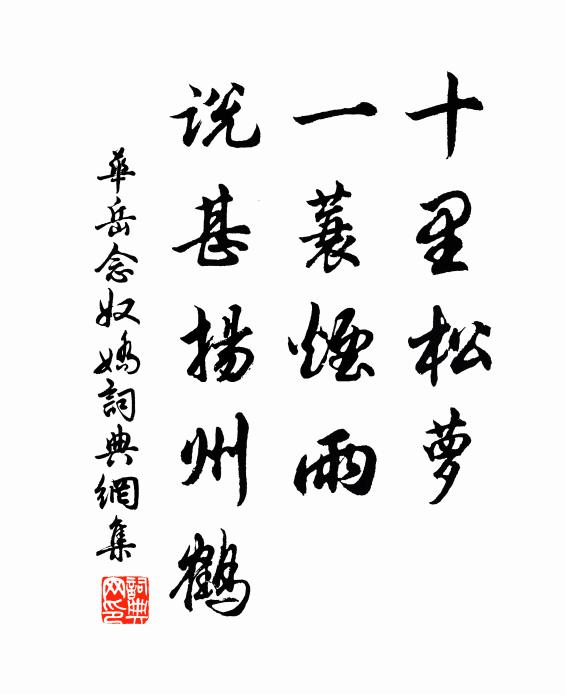 十里松萝
一蓑煙雨
説甚揚州鶴
華岳念奴嬌詞典網集
詞典
网印